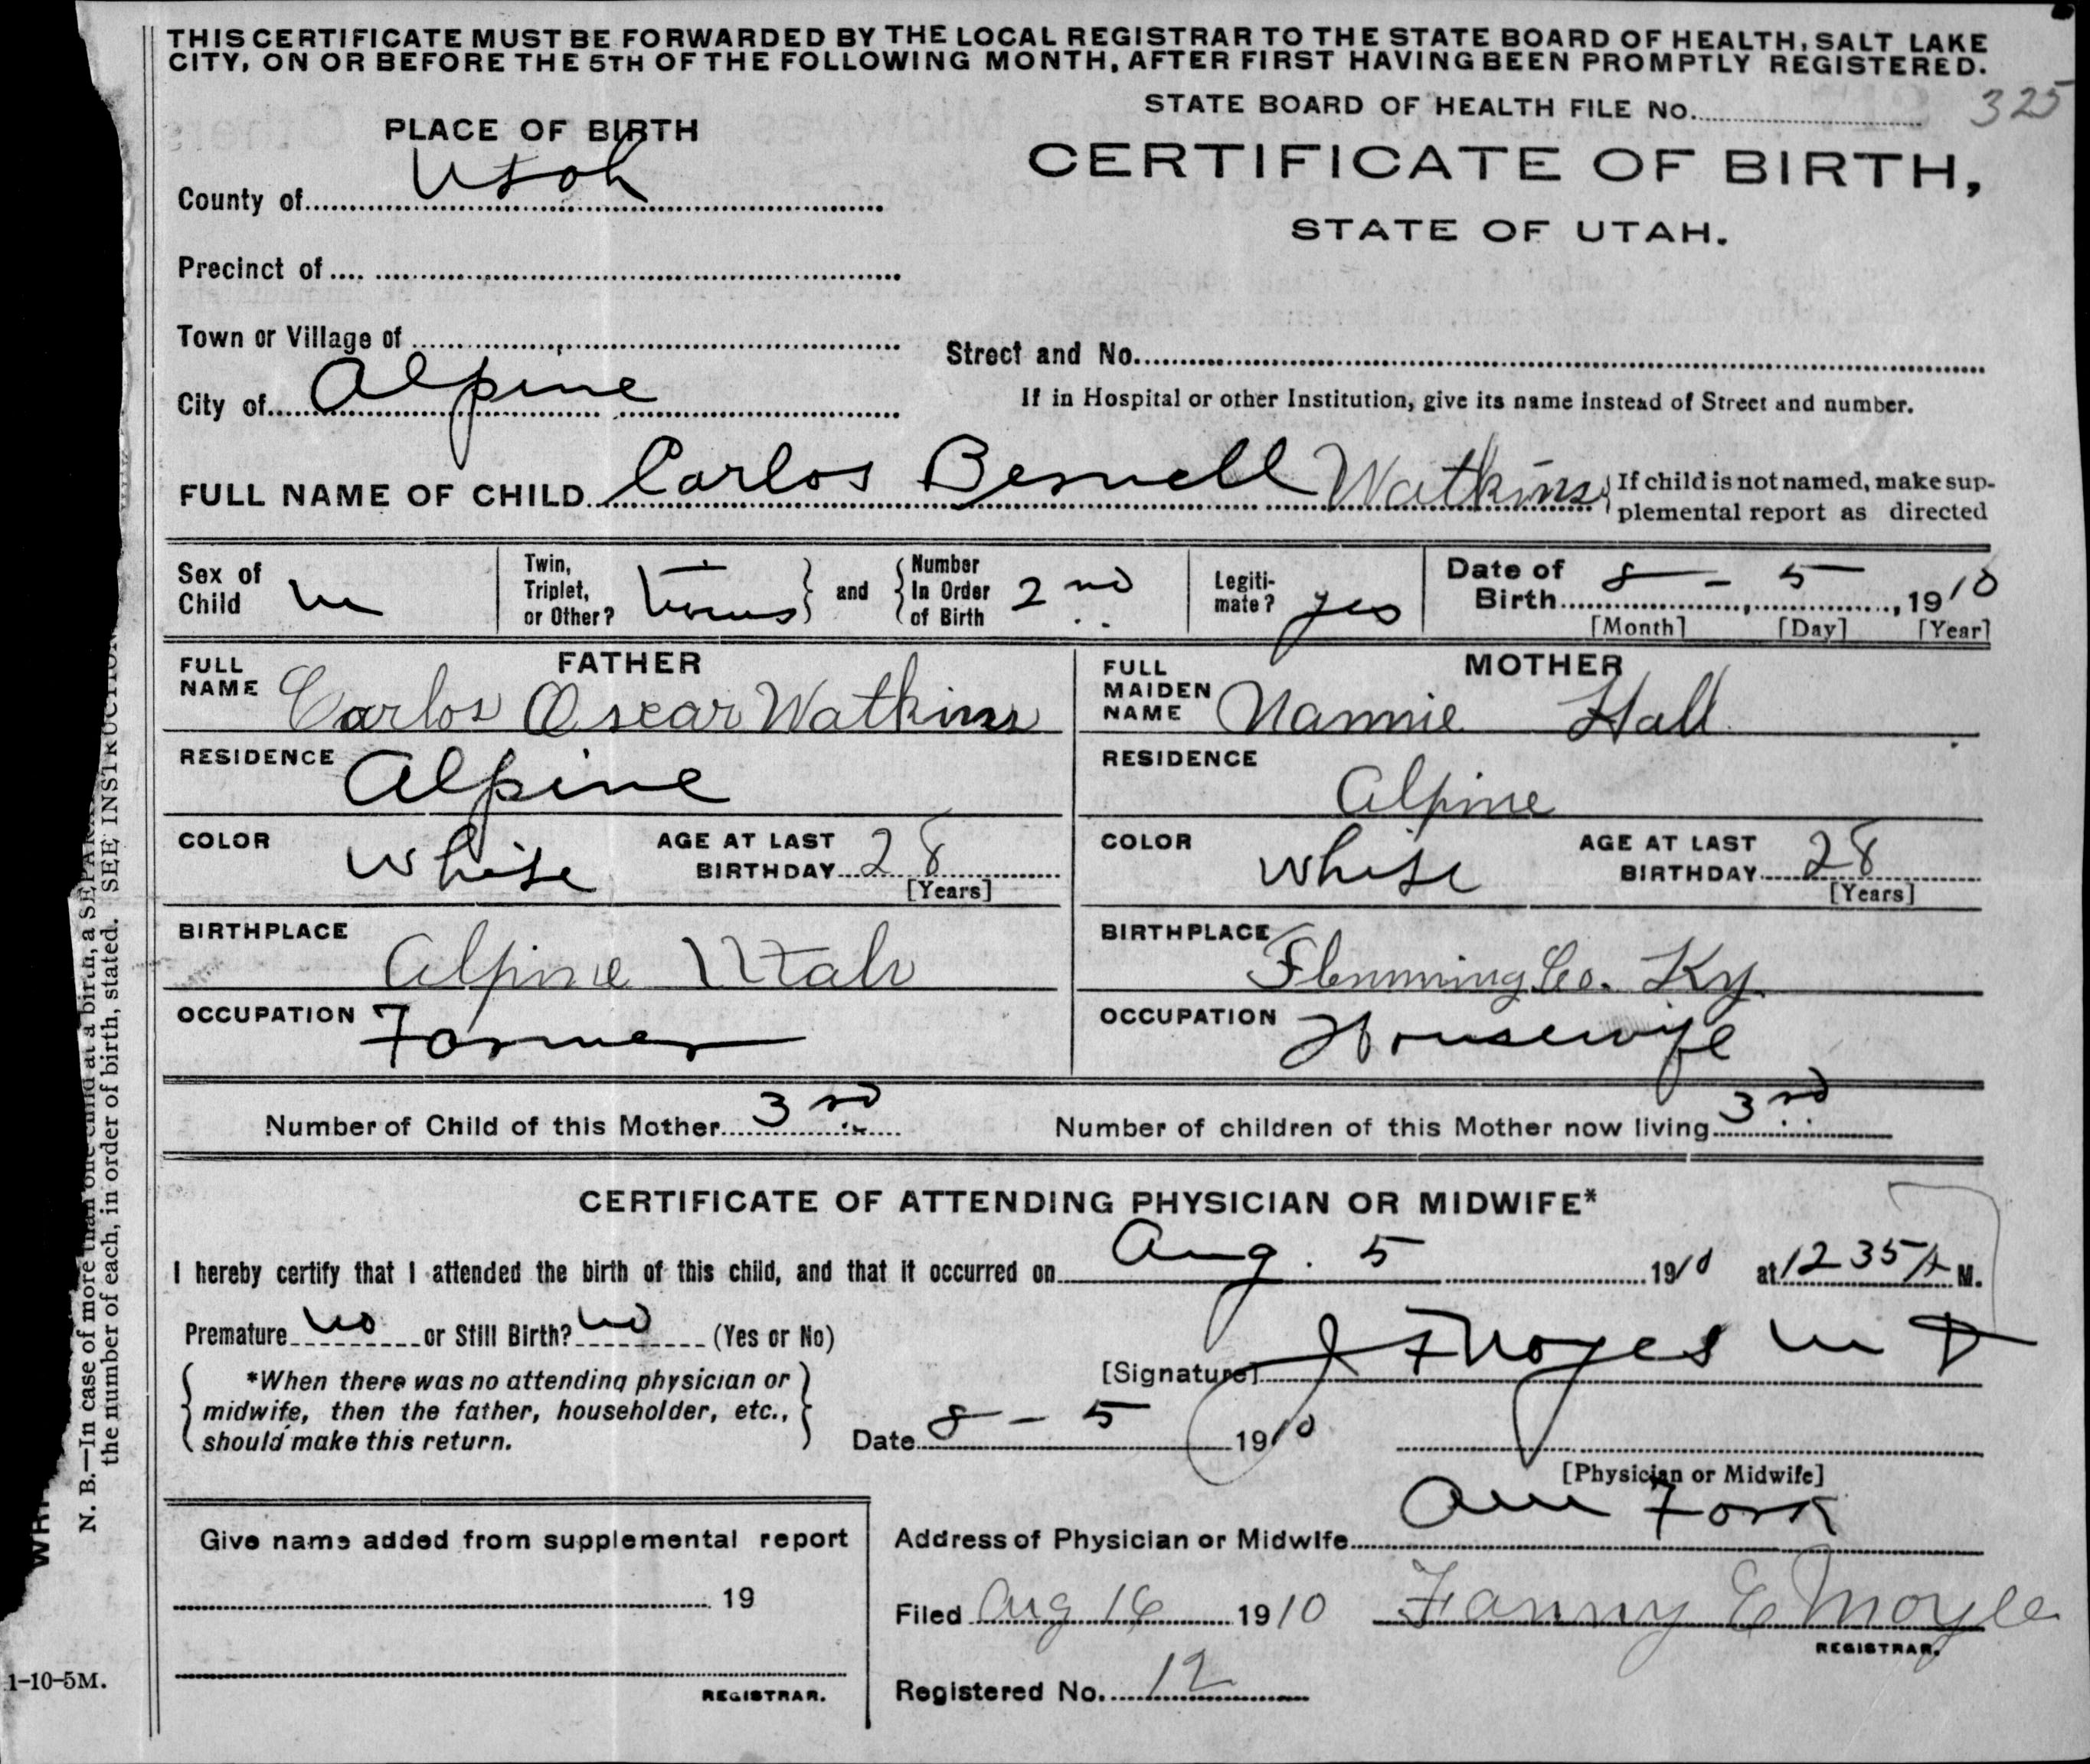 THIS CERTIFICATE MUST BE FORWARDED BY THE LOCAL REGISTRAR TO THE STATE BOARD OF HEALTH, SALT LAKE
CITY, ON OR BEFORE THE 5TH OF THE FOLLOWING MONTH, AFTER FIRST HAVING BEEN PROMPTLY REGISTERED.
STATE BOARD OF HEALTH FILE No. 325
PLACE OF BIRTH
CERTIFICATE OF BIRTH,
STATE OF UTAH.
County of Utah
Precinct of
Town or Village of
Street and No.
City of Alpine
If in Hospital or other Institution, give its name instead of Street and number.
FULL NAME OF CHILD Carlos Watkins
If child is not named, make sup-
plemental report as directed
Sex of Child M
Twin, Triplet, or Other? Twins and Number In Order of Birth 2nd
Legiti-mate? yes
Date of Birth 8 - 5, 1910
[Month] [Day] [Year]
FATHER
FULL NAME Carlos Oscar Watkins
RESIDENCE Alpine
COLOR White AGE AT LAST BIRTHDAY 28
[Years]
BIRTHPLACE Alpine Utah
OCCUPATION Farmer
MOTHER
FULL MAIDEN NAME Nannie Hall
RESIDENCE Alpine
COLOR White AGE AT LAST BIRTHDAY 28
[Years]
BIRTHPLACE Flemming Co. Ky.
OCCUPATION Housewife
Number of Child of this Mother 3rd Number of children of this Mother now living 3rd
CERTIFICATE OF ATTENDING PHYSICIAN OR MIDWIFE*
I hereby certify that I attended the birth of this child, and that it occurred on Aug. 5 1910 at 12 35 A M.
Premature no or Still Birth? no (Yes or No)
*When there was no attending physician or
midwife, then the father, householder, etc.,
should make this return.
[Signature] J F Noyes M D
Date 8 - 5 1910
[Physician or Midwife]
Address of Physician or Midwife Am Fork
Give name added from supplemental report
19
REGISTRAR.
Filed Aug 16 1910 Fanny E Moyle
REGISTRAR.
Registered No. 12
N. B.—In case of more than one child at a birth, a
the number of each, in order of birth, stated. SEE INSTRUCTION
1-10-5M.